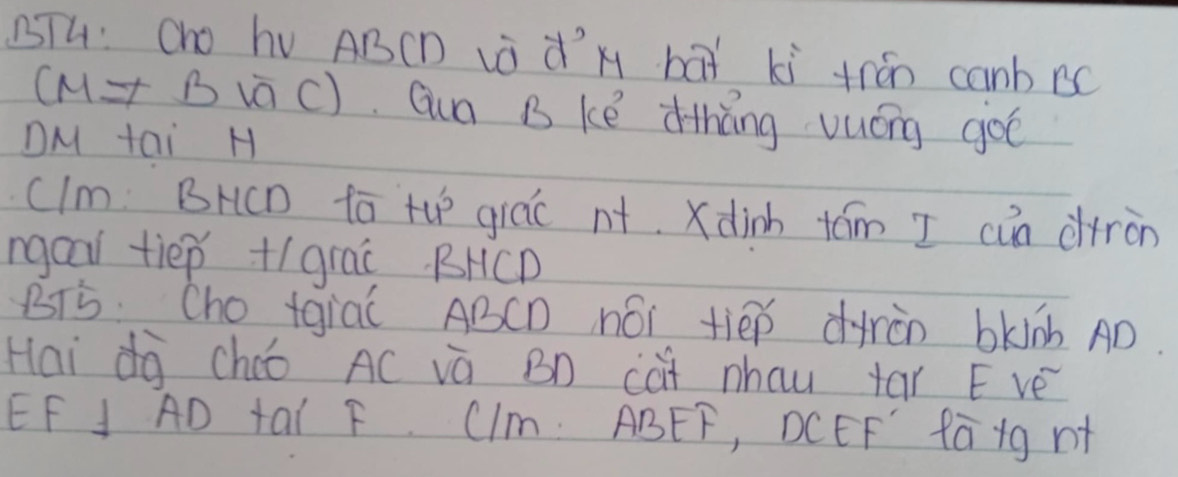 BT4: Cho hv ABCD và đ' M bất kì trên cạnh BC
(M ≠ B và C). Qua B kẻ đthẳng vuông góc
DM tại H
C/m: BHCD là tứ giác nt. Xđịnh tâm I của đtròn
ngoại tiếp t/giác BHCD
BT5: Cho tgiác ABCD nội tiếp đtròn bkính AD.
Hai đg chéo AC và BD cắt nhau tại E vẽ
EF ⊥ AD tại F. C/m: ABEF, DCEF là tg nt